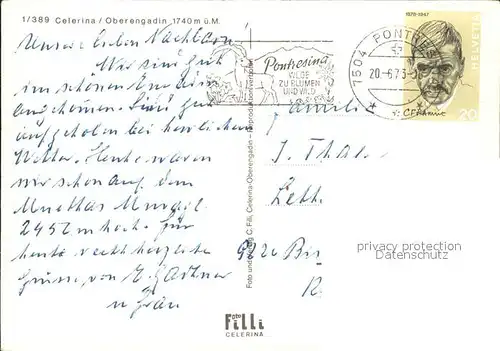 1/389 Celerina / Oberengadin 1740 m ü.M.
Unsere lieben Nachbarn!
Wir sind gut
im schönen Engadin
angekommen. Sind gut
aufgehoben bei herrlichem
Wetter. Heute waren
wir schon auf dem
Muottas Muragl
2452 m hoch. Für
heute recht herzliche
Grüsse von E.
u Frau
Foto und Verlag C. Filli, Celerina-Oberengadin - Reproduktion verboten
Pontresina
WEGE
ZU BLUMEN
UND WILD
7504 PONTRESINA
20.-6.73
1878-1947
HELVETIA
C F Ramuz
20
Familie
J.
9220
privacy protection
watermark
Foto
Filli
CELERINA